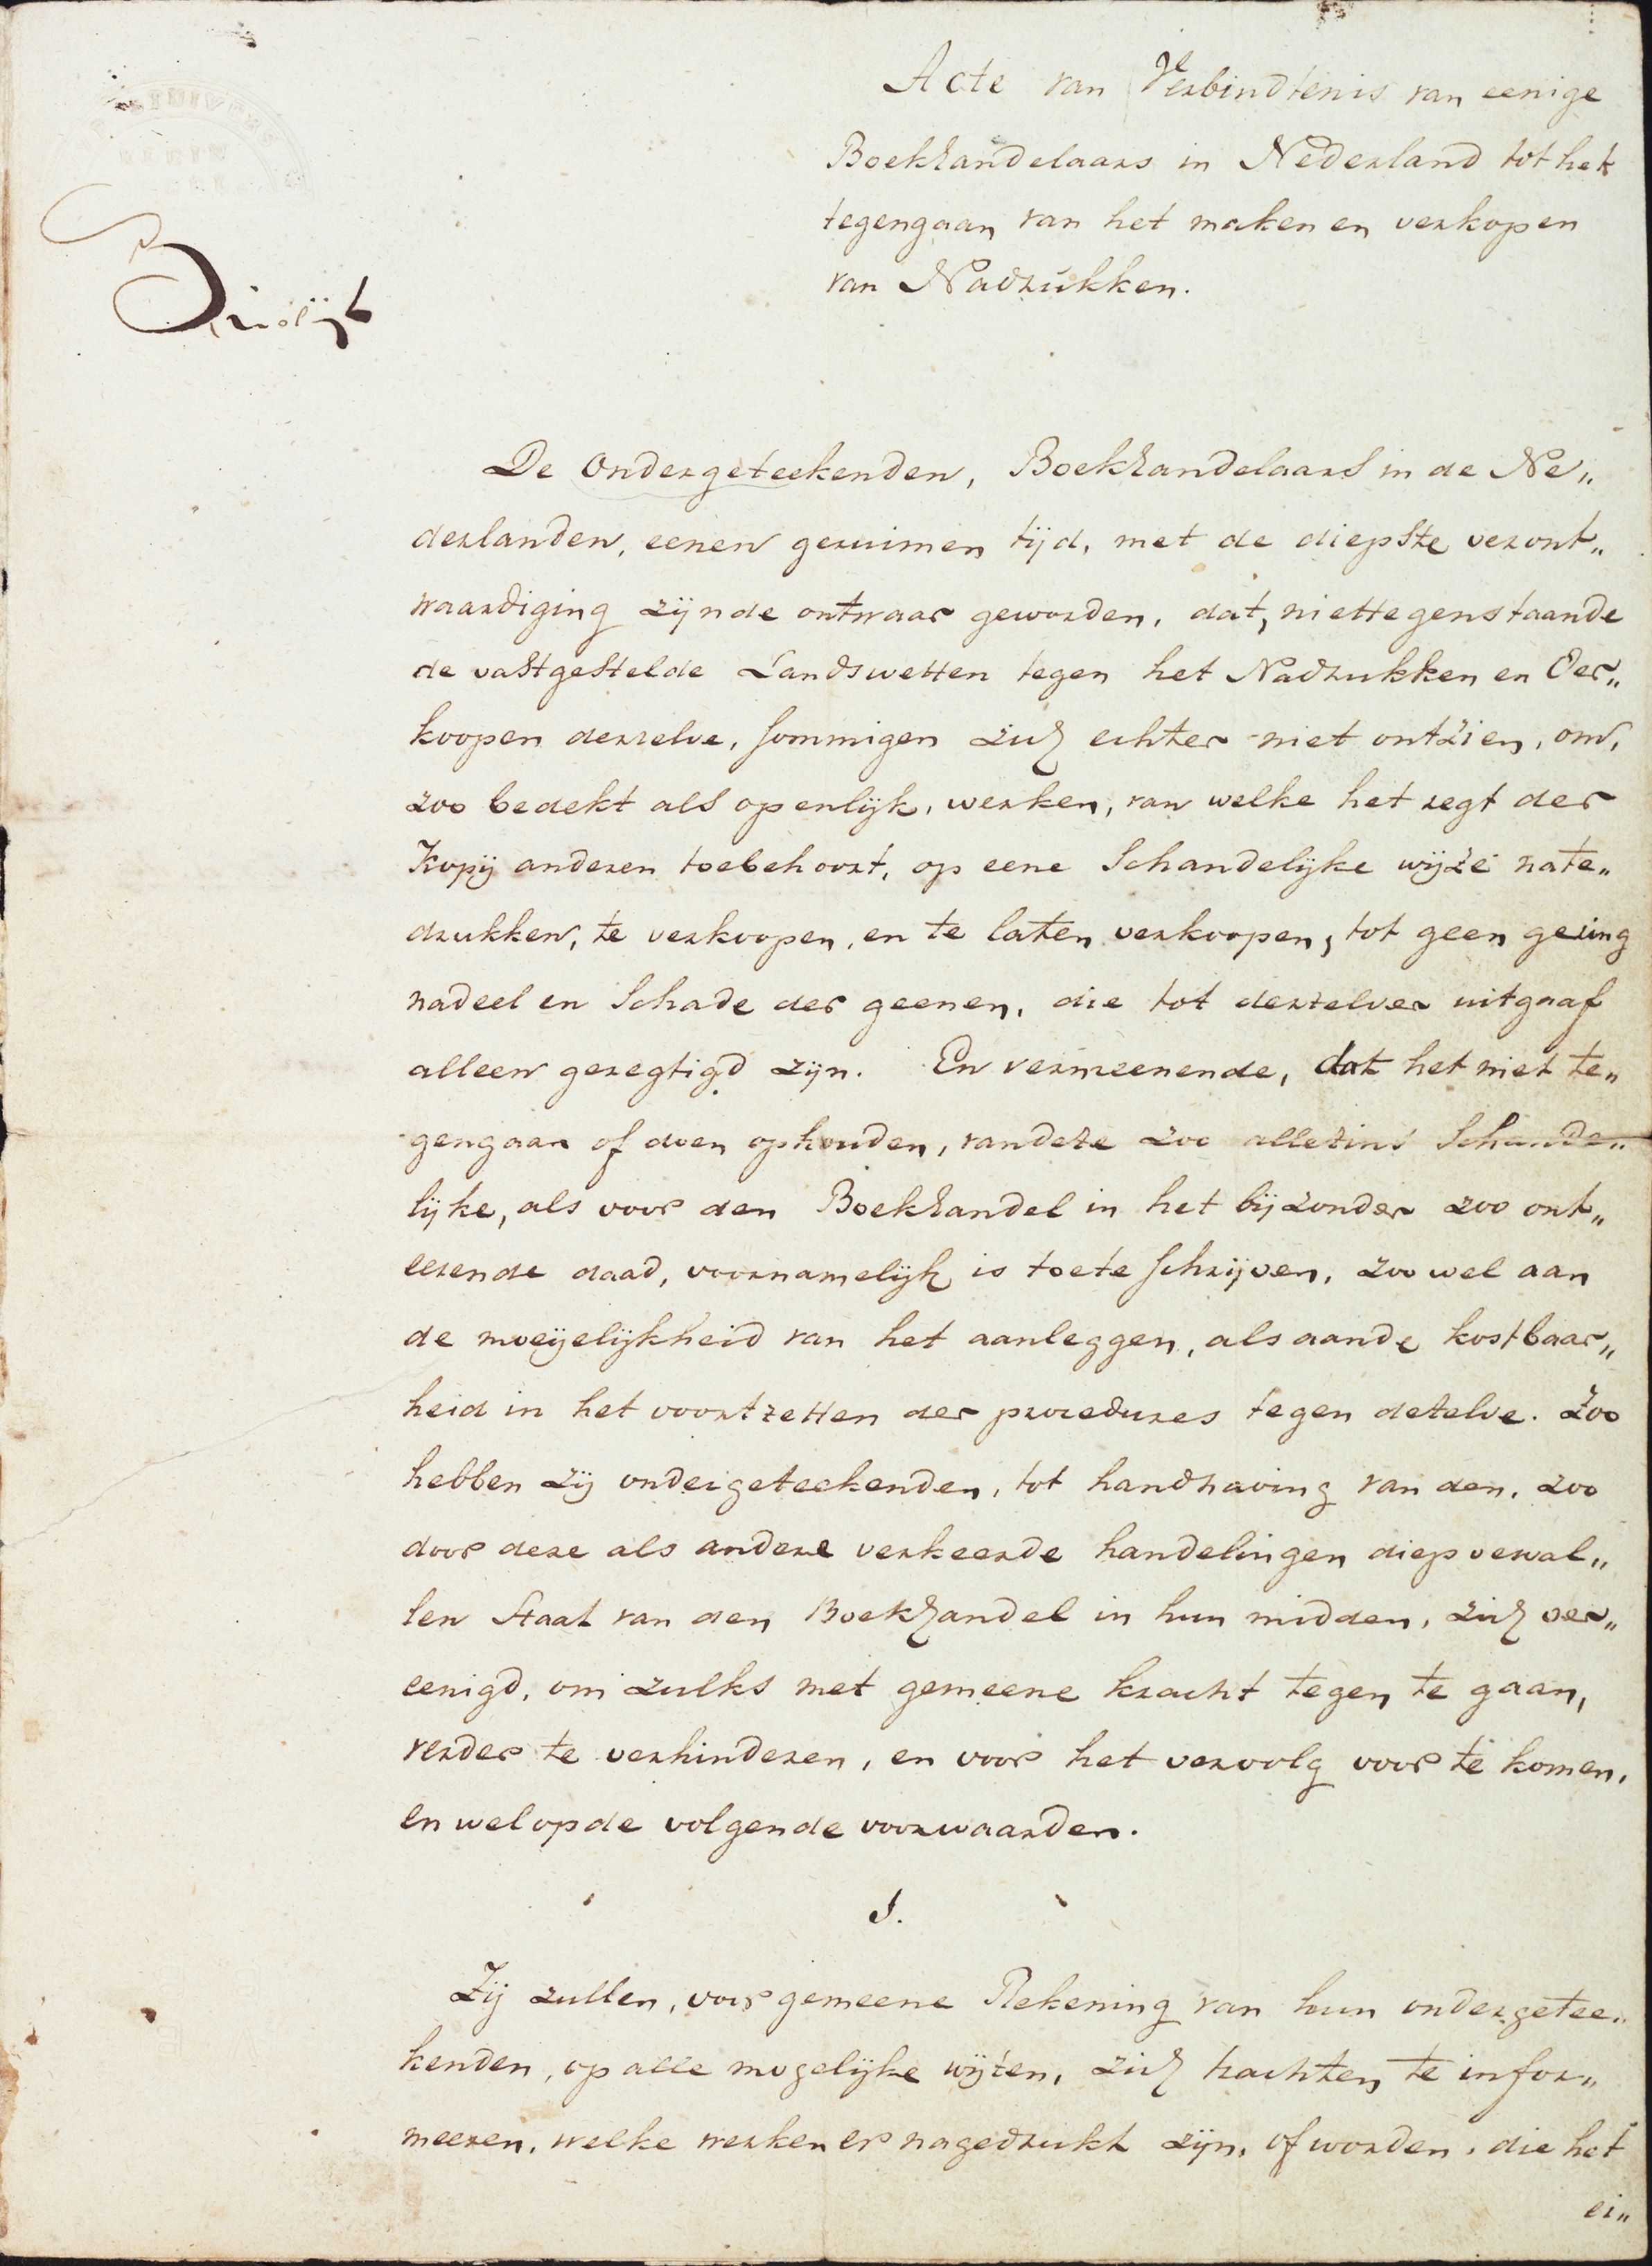 Acte van Verbindtenis van eenige
Boekhandelaars in Nederland tot het
tegengaan van het maken en verkopen
van Nadrukken.
De Ondergeteekenden, Boekhandelaars in de Ne„
derlanden, eenen geruimen tijd, met de diepste veront„
waardiging zijnde ontwaar geworden, dat, niettegenstaande
de vastgestelde Landswetten tegen het Nadrukken en Ver„
koopen derzelve, sommigen zich echter niet ontzien, om,
zoo bedekt als openlijk, werken, van welke het regt der
Kopij anderen toebehoort, op eene Schandelijke wijze nate„
drukken, te verkoopen, en te laten verkoopen, tot geen gering
nadeel en Schade der geenen, die tot derzelver uitgaaf
alleen geregtigd zijn. En vermeenende, dat het niet te„
gengaan of doen ophouden, vandeze zoo allezins Schande„
lijke, als voor den Boekhandel in het bijzonder zoo ont„
eerende daad, voornamelijk is toete schrijven, zoo wel aan
de moeijelijkheid van het aanleggen, als aande kostbaar„
heid in het voortzetten der procedures tegen dezelve. Zoo
hebben zij ondergeteekenden, tot handhaving van den, zoo
door deze als andere verkeerde handelingen diep verval„
len Staat van den Boekhandel in hun midden, zich ver„
eenigd, om zulks met gemeene kracht tegen te gaan,
verder te verhinderen, en voor het vervolg voor te komen,
en wel op de volgende voorwaarden.
1.
Zij zullen, voor gemeene Rekening van hun ondergetee„
kenden, op alle mogelijke wijzen, zich trachten te infor„
meeren, welke werken er nagedrukt zijn, of worden, die het
ei„